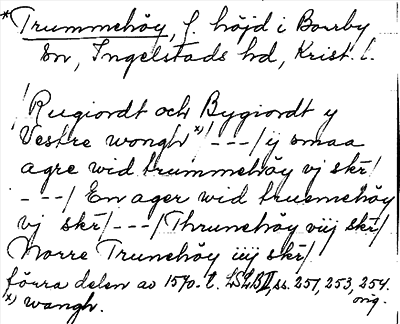 *Trummehöy, f. höjd i Borrby
sn, Ingelstads hd, Krist. l.
/Rugiordt och Bygiordt y
Vestre wongh x)/---/y smaa
agre wid trummehöy vj skr/
---/ En ager wid truemehöy
vj skr/---/Thrunehöy viij skr/
Norre Trunehöy iiij skr/.
förra delen av 1570-t. LSLB II, ss. 251, 253, 254.
orig.
x) wangh.